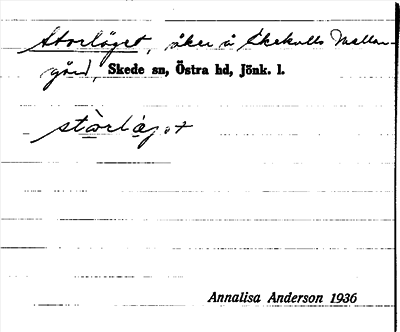 Storläget, åker å Skekulls Mellan-
gård, Skede sn, Östra hd, Jönk. l.
stòrlạ̈gət
Annalisa Anderson 1936